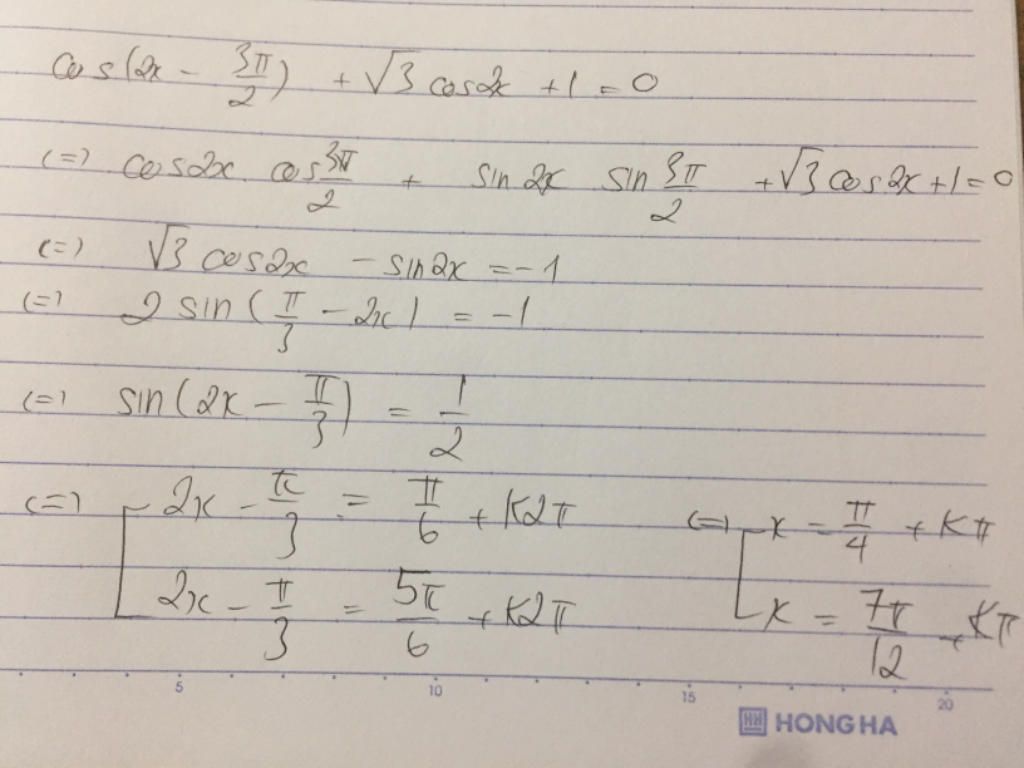 cos(2x - 3π/2) + √3 cos2x + 1 = 0
(=) cos2x cos 3π/2 + sin 2x sin 3π/2 + √3 cos 2x + 1 = 0
(=) √3 cos2x - sin2x = -1
(=) 2 sin(π/3 - 2x) = -1
(=) sin(2x - π/3) = 1/2
(=) [ 2x - π/3 = π/6 + K2π (=) [ x = π/4 + Kπ
2x - π/3 = 5π/6 + K2π x = 7π/12 + Kπ
5 10 15 20
HH HONG HA